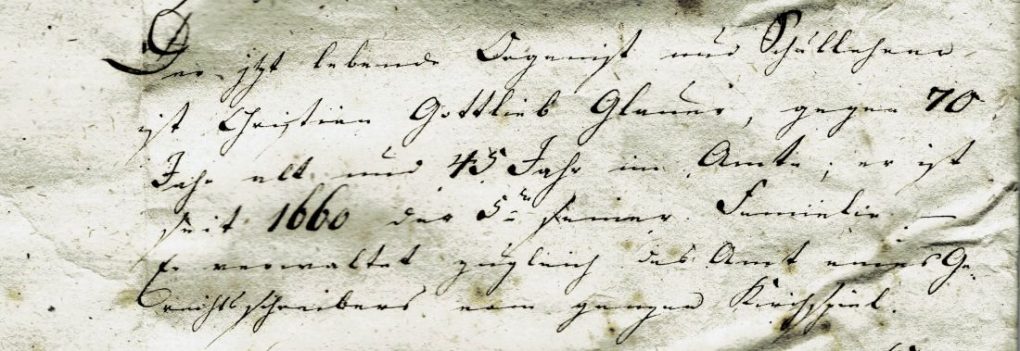 Der jtzt lebende Organist und Schullehrer
ist Christian Gottlieb Glauer, gegen 70
Jahr alt und 45 Jahr im Amte; er ist
seit 1660 der 5te seiner Familie. —
Er verwaltet zugleich das Amt eines Ge-
richtsschreibers vom ganzen Kirchspiel.